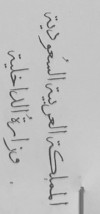 المملكة العربية السعودية
وزارة الداخلية